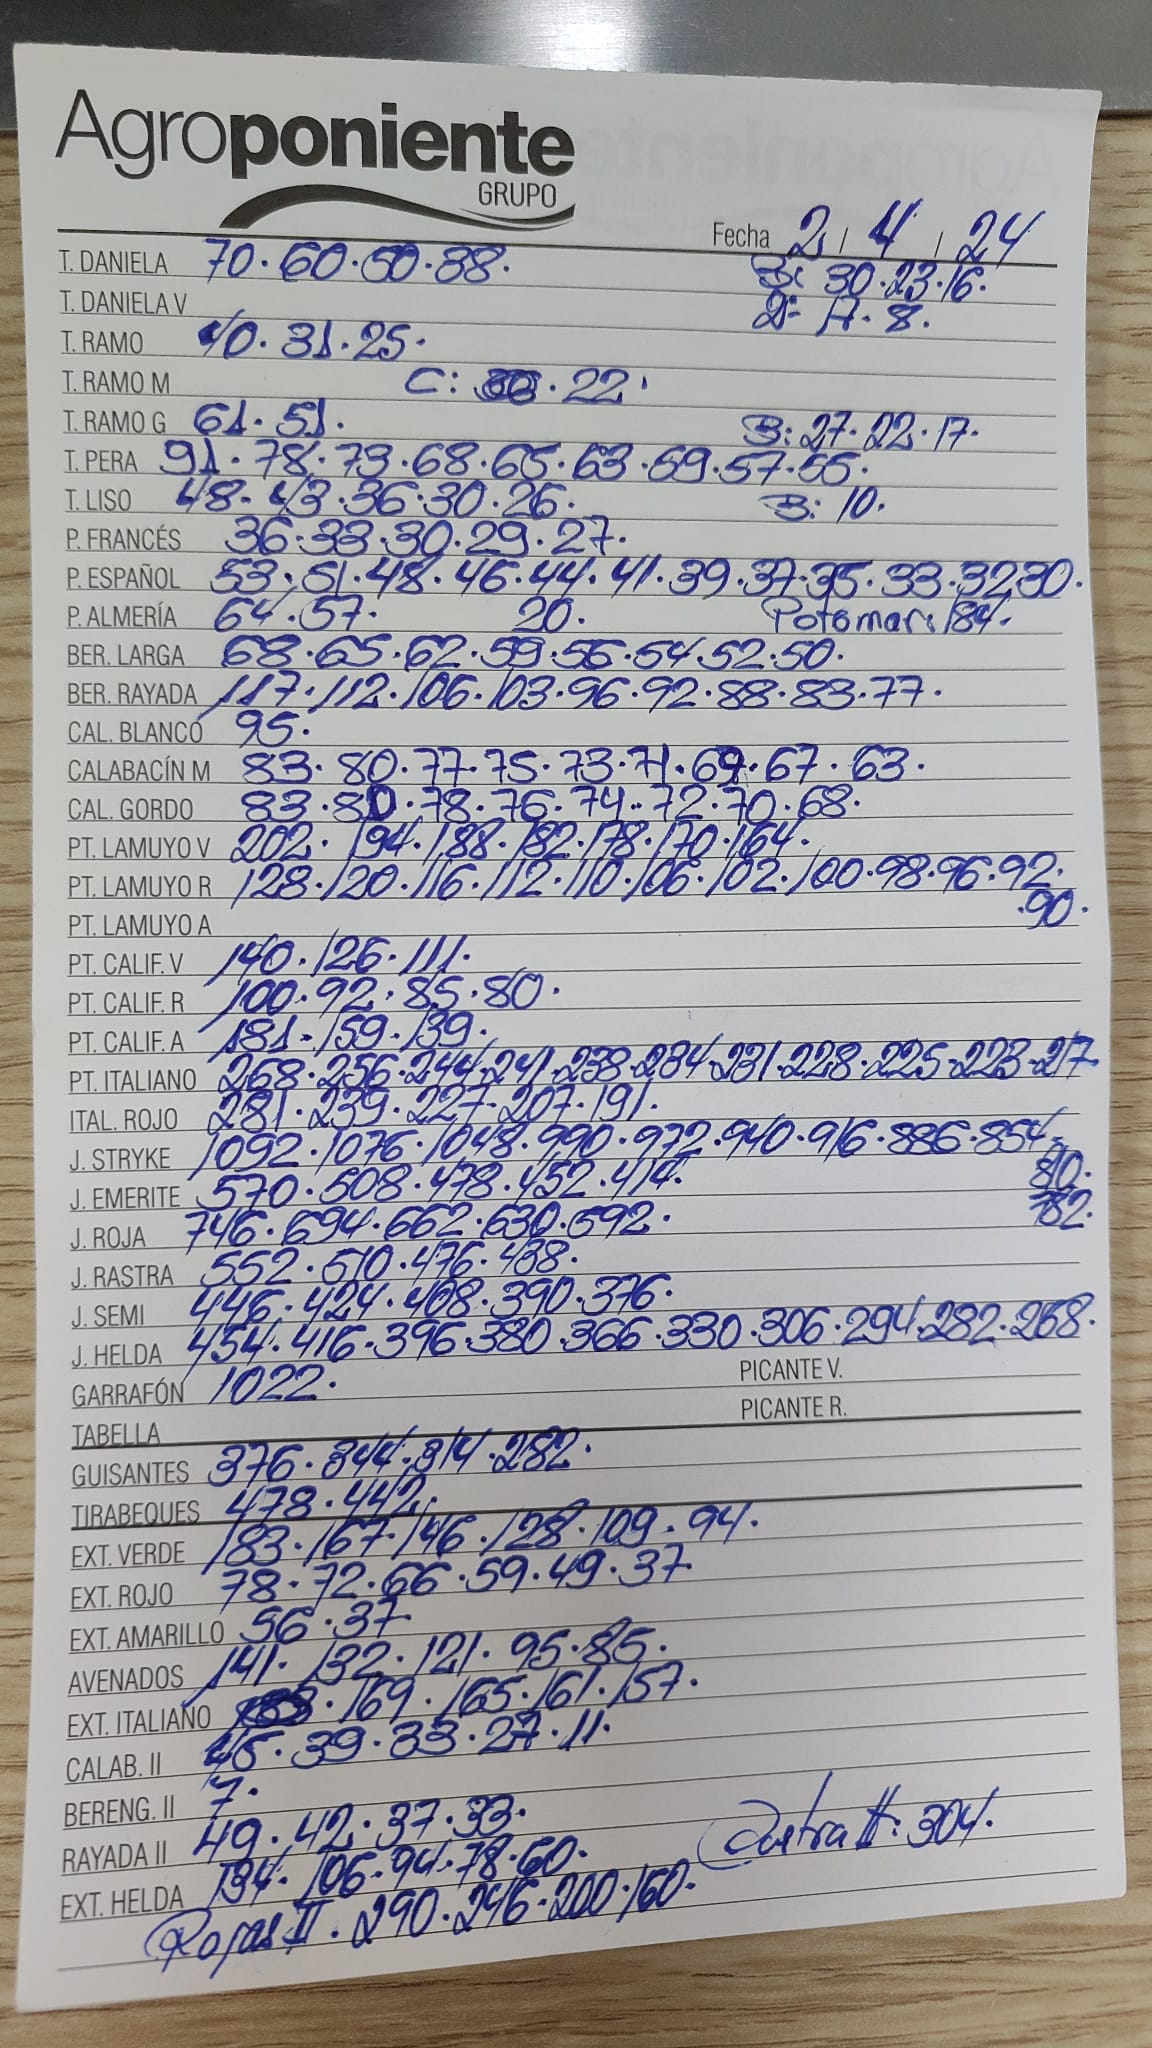 Agroponiente
GRUPO
Fecha 2 / 4 / 24
T. DANIELA 70·60·50·38· B: 30·23·16·
T. DANIELA V 2ª: 17·8·
T. RAMO 40·31·25·
T. RAMO M C: 22·
T. RAMO G 61·51· B: 27·22·17·
T. PERA 91·78·73·68·65·63·59·57·55·
T. LISO 48·43·36·30·26· B: 10·
P. FRANCÉS 36·33·30·29·27·
P. ESPAÑOL 53·51·48·46·44·41·39·37·35·33·32·30·
P. ALMERÍA 64·57· 20· Potomar: 184·
BER. LARGA 68·65·62·59·56·54·52·50·
BER. RAYADA 117·112·106·103·96·92·88·83·77·
CAL. BLANCO 95·
CALABACÍN M 83·80·77·75·73·71·69·67·63·
CAL. GORDO 83·80·78·76·74·72·70·68·
PT. LAMUYO V 202·194·188·182·178·170·164·
PT. LAMUYO R 128·120·116·112·110·106·102·100·98·96·92·
·90·
PT. LAMUYO A
PT. CALIF. V 140·126·111·
PT. CALIF. R 100·92·85·80·
PT. CALIF. A 181·159·139·
PT. ITALIANO 268·256·244·241·238·234·231·228·225·223·217
ITAL. ROJO 281·239·227·207·191·
J. STRYKE 1092·1076·1048·990·972·940·916·886·854·
810·
J. EMERITE 570·508·478·452·414·
782·
J. ROJA 746·694·662·630·592·
J. RASTRA 552·510·476·438·
J. SEMI 446·424·408·390·376·
J. HELDA 454·416·396·380·366·330·306·294·282·268·
GARRAFÓN 1022· PICANTE V.
TABELLA PICANTE R.
GUISANTES 376·344·314·282·
TIRABEQUES 478·442·
EXT. VERDE 183·167·146·128·109·94·
EXT. ROJO 78·72·66·59·49·37
EXT. AMARILLO 56·37
AVENADOS 141·132·121·95·85·
EXT. ITALIANO 169·165·161·157·
CALAB. II 45·39·33·27·11·
BERENG. II 7·
RAYADA II 49·42·37·33·
EXT. HELDA 134·106·94·78·60· II: 304·
Rojas II· 290·246·200·160·